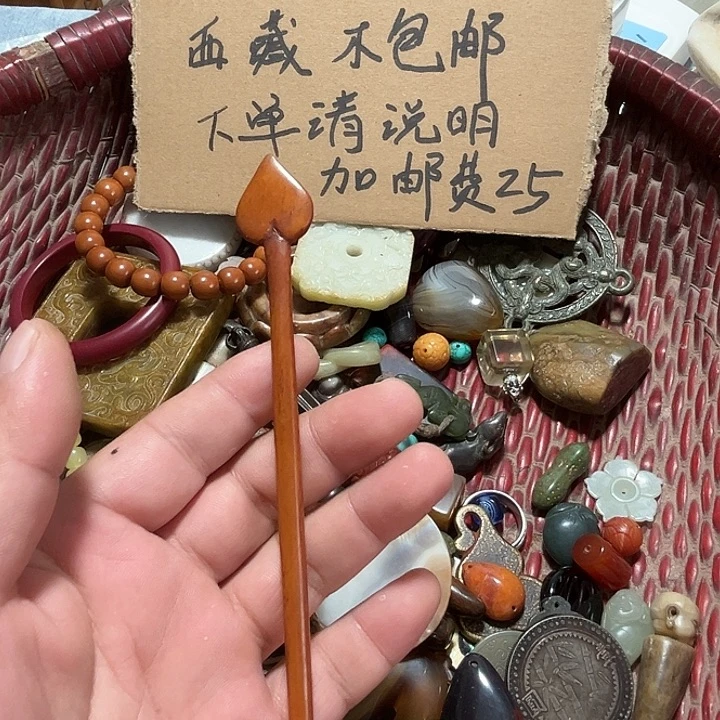 西藏不包邮
下单请说明
加邮费25